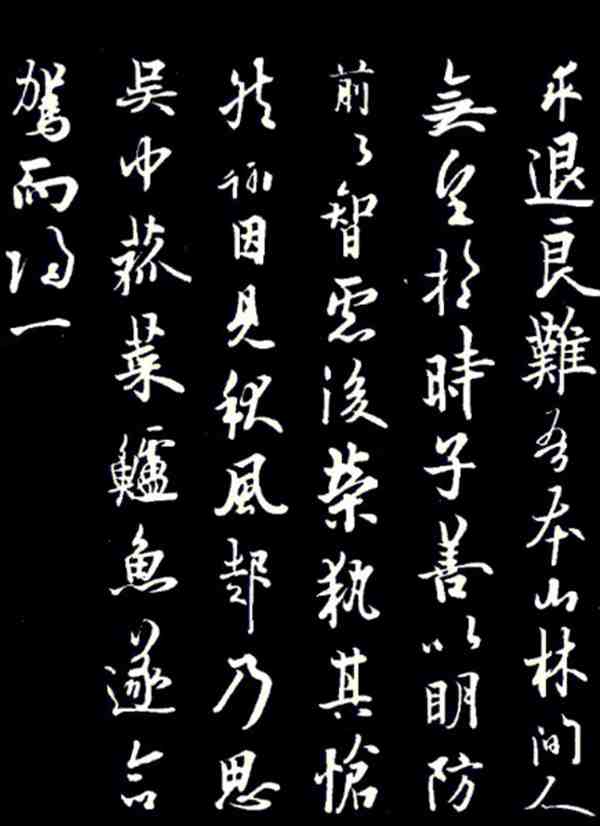 求退良難吾本山林間人
無望於時子善以明防
前以智慮後榮執其愴
然因見秋風起乃思
吳中菰菜鱸魚遂命
駕而歸一